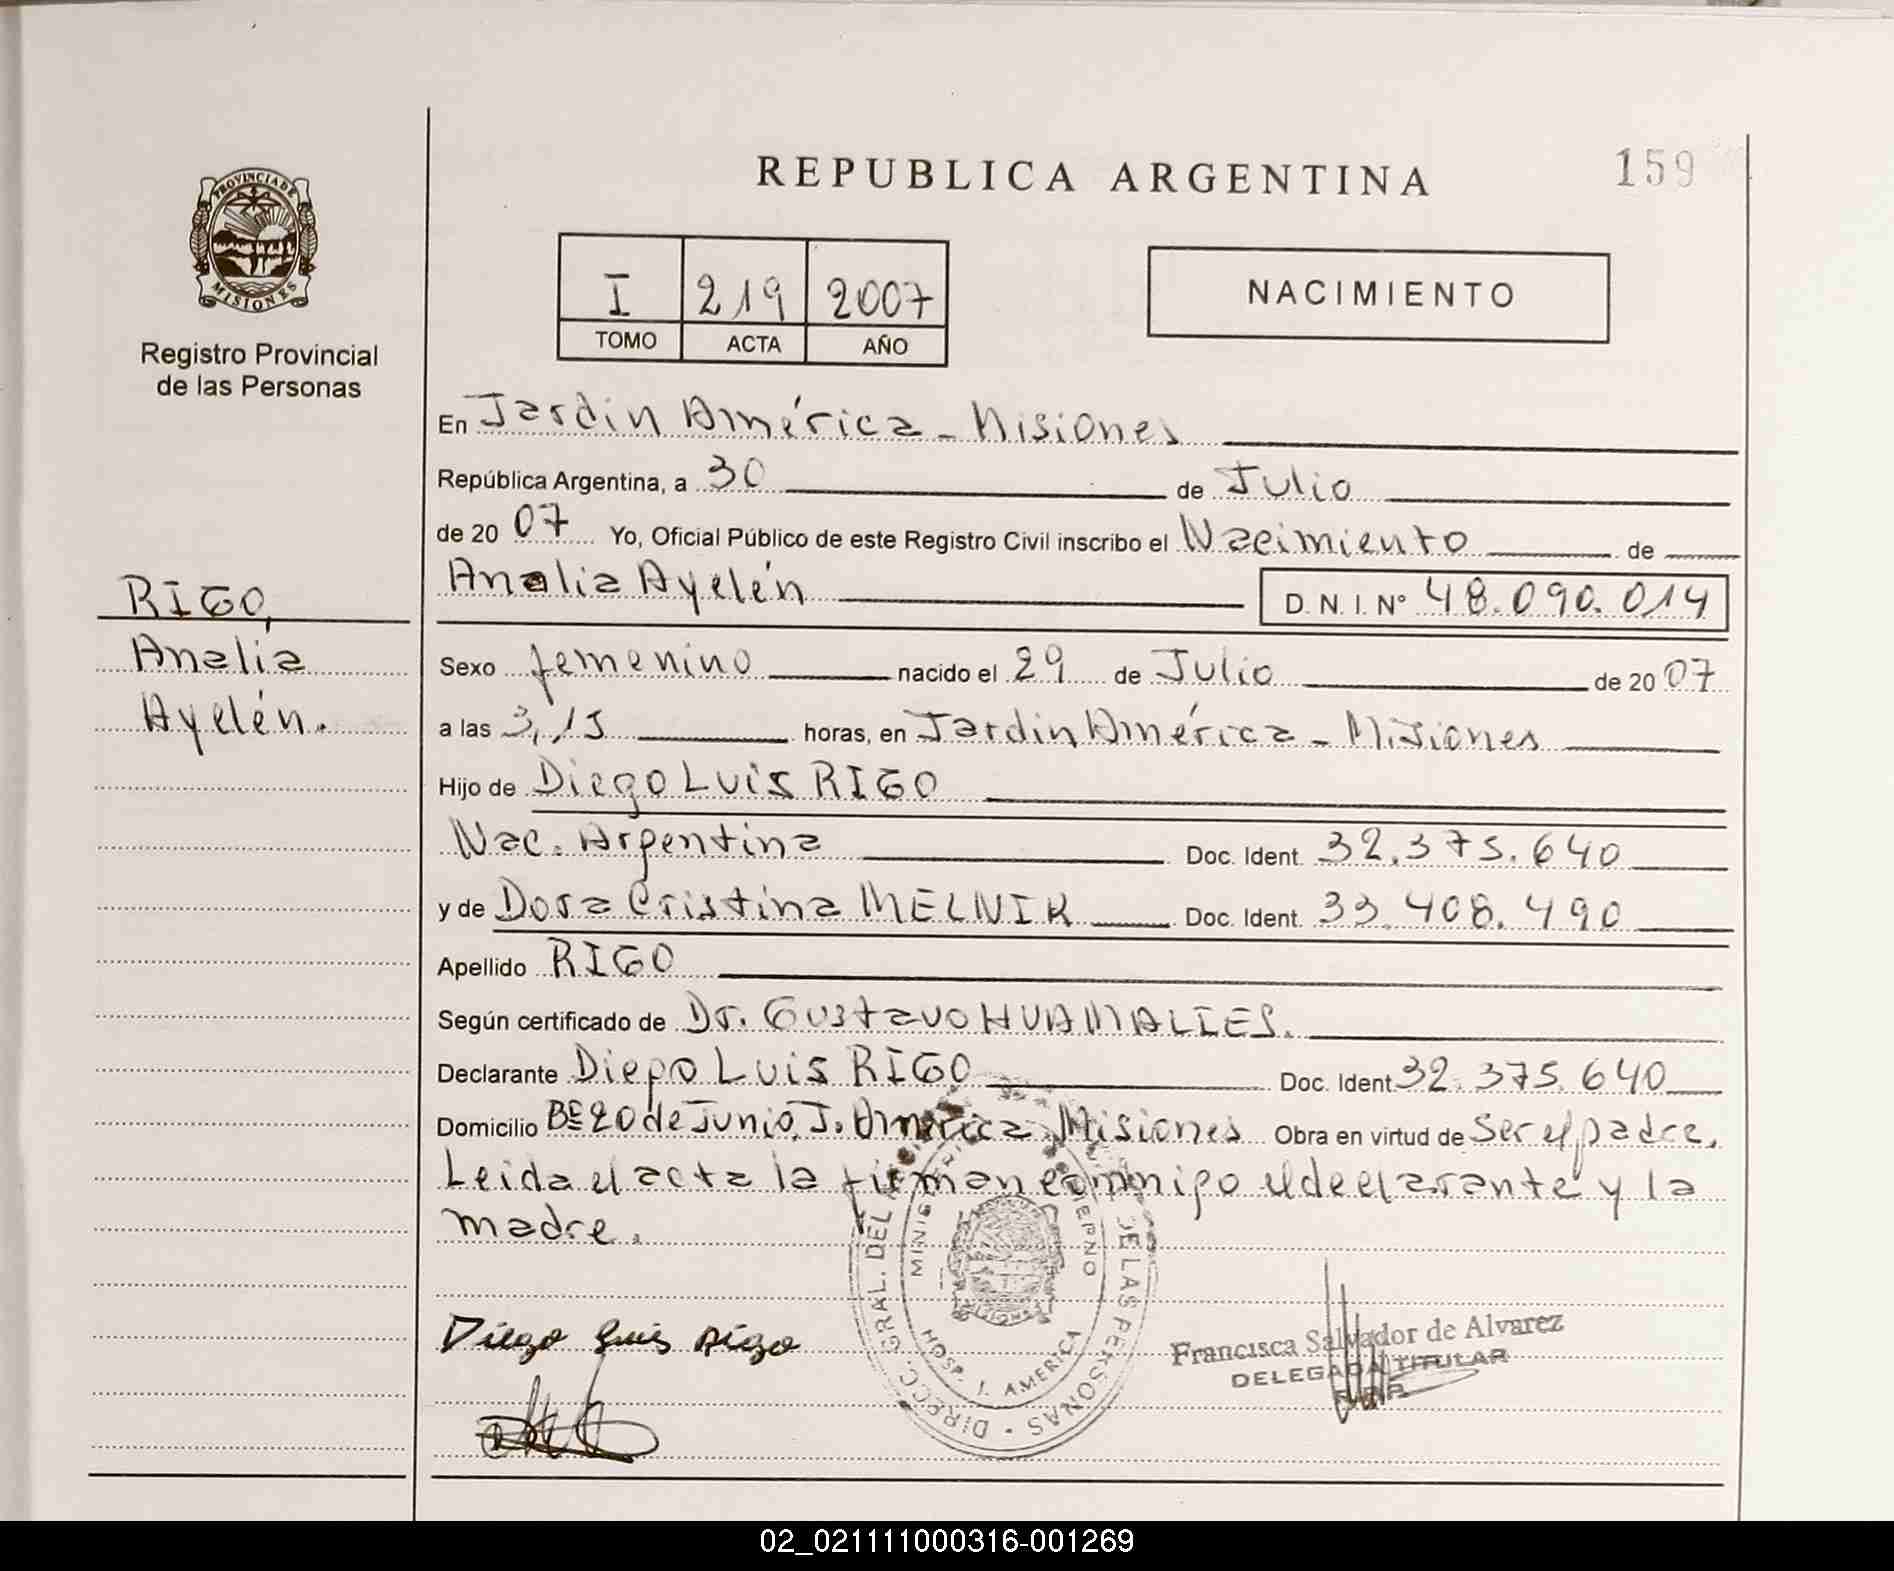 REPUBLICA ARGENTINA
159
PROVINCIA DE
MISIONES
Registro Provincial
de las Personas
I 219 2007
TOMO ACTA AÑO
NACIMIENTO
RIGO,
Analia
Ayelén.
En Jardin América - Misiones
República Argentina, a 30 de Julio
de 2007 Yo, Oficial Público de este Registro Civil inscribo el Nacimiento de
Analia Ayelén D.N.I. Nº 48.090.014
Sexo femenino nacido el 29 de Julio de 2007
a las 3,15 horas, en Jardin América - Misiones
Hijo de Diego Luis RIGO
Nac. Argentina Doc. Ident. 32.375.640
y de Dora Cristina MELNIK Doc. Ident. 33.408.490
Apellido RIGO
Según certificado de Dr. Gustavo HUAMALIES.
Declarante Diego Luis RIGO Doc. Ident. 32.375.640
Domicilio Bº 20 de Junio, J. América, Misiones Obra en virtud de Ser el padre.
Leida el acta la firman conmigo el declarante y la
madre.
DIRECC. GRAL. DEL DE LAS PERSONAS
HOSP. J. AMERICA
Diego Luis Rigo
Francisca Salvador de Alvarez
DELEGADA TITULAR
02_021111000316-001269